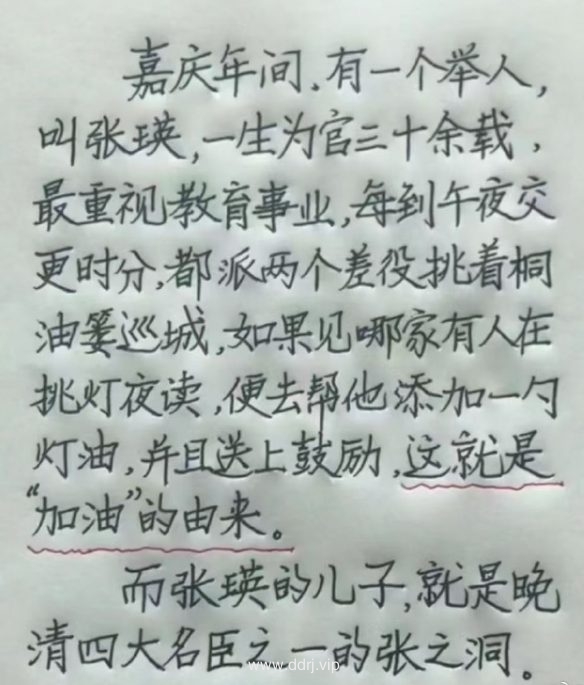 嘉庆年间,有一个举人,
叫张瑛,一生为官三十余载,
最重视教育事业,每到午夜交
更时分,都派两个差役挑着桐
油篓巡城,如果见哪家有人在
挑灯夜读,便去帮他添加一勺
灯油,并且送上鼓励,这就是
“加油”的由来。
而张瑛的儿子,就是晚
清四大名臣之一的张之洞。
www.ddrj.vip